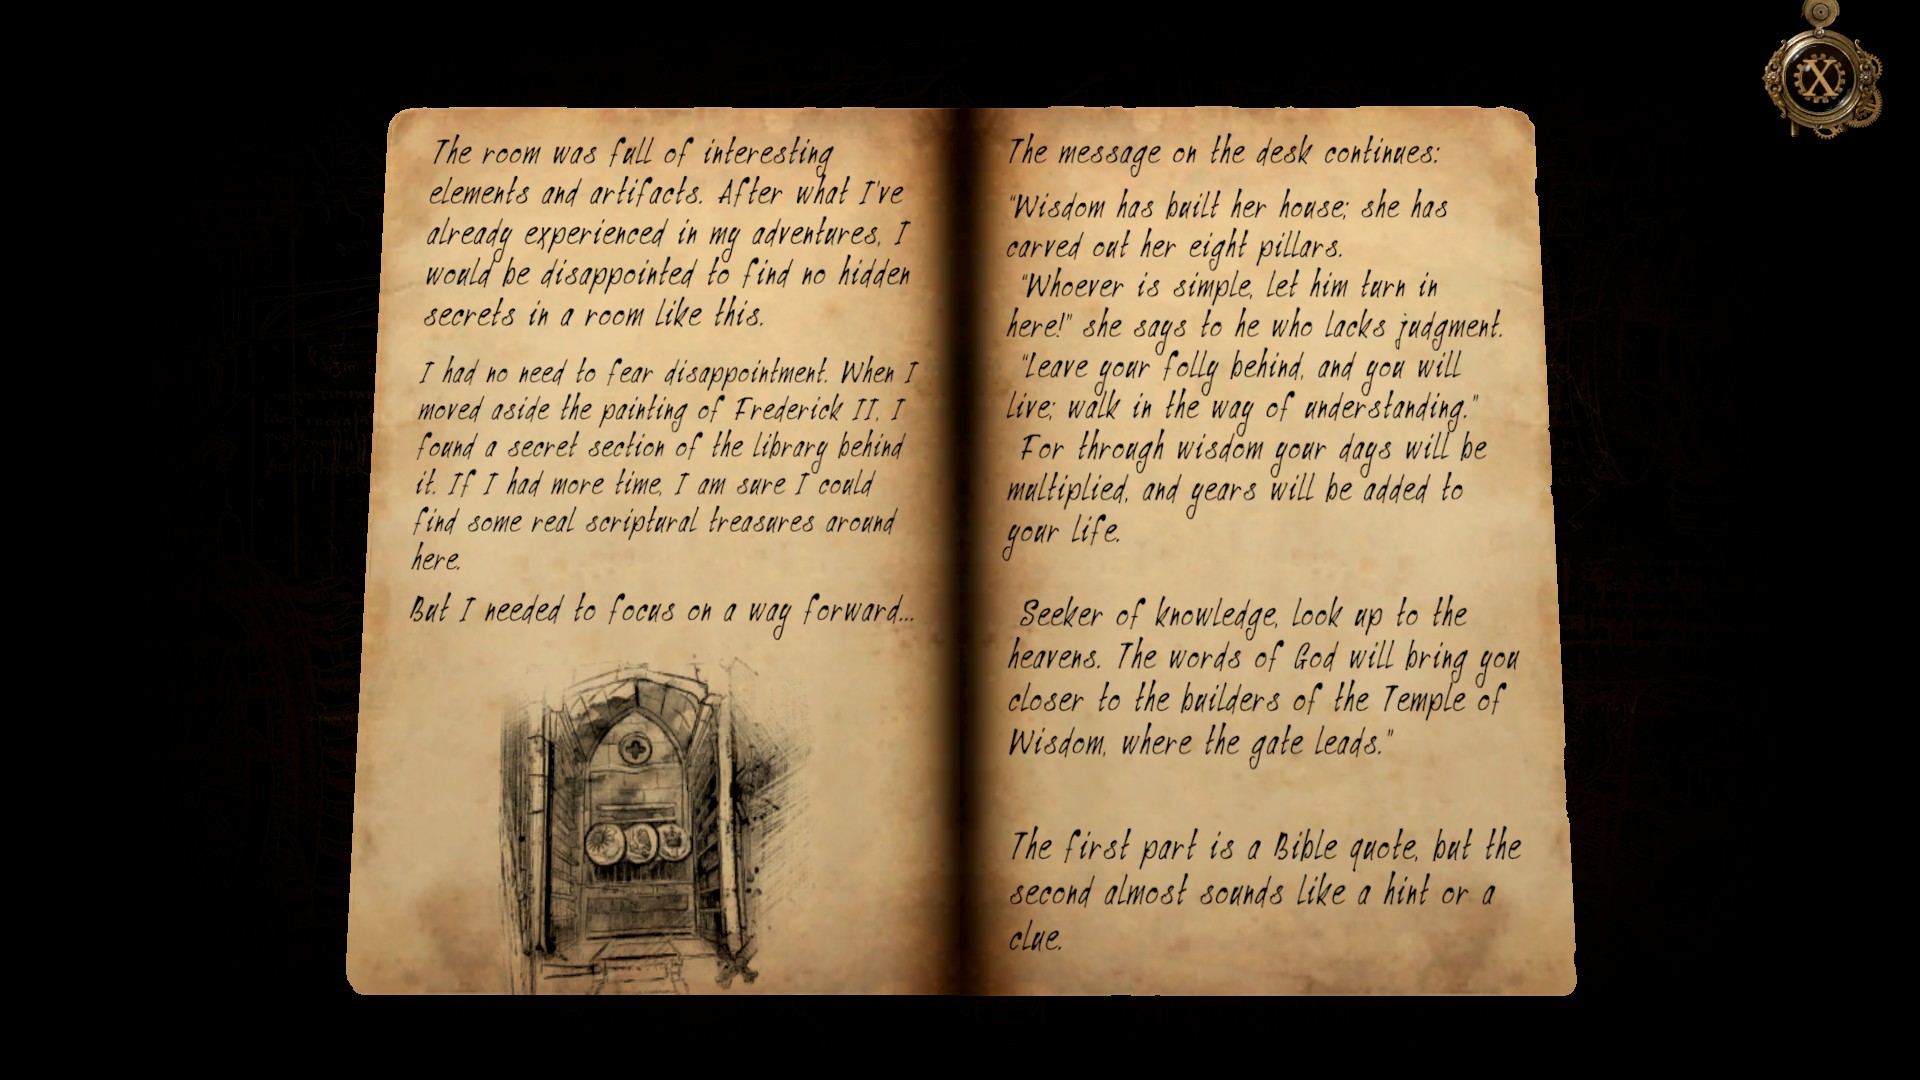 The room was full of interesting
elements and artifacts. After what I've
already experienced in my adventures, I
would be disappointed to find no hidden
secrets in a room like this.
I had no need to fear disappointment. When I
moved aside the painting of Frederick II, I
found a secret section of the library behind
it. If I had more time, I am sure I could
find some real scriptural treasures around
here.
But I needed to focus on a way forward...
The message on the desk continues:
"Wisdom has built her house; she has
carved out her eight pillars.
"Whoever is simple, let him turn in
here!" she says to he who lacks judgment.
"Leave your folly behind, and you will
live; walk in the way of understanding."
For through wisdom your days will be
multiplied, and years will be added to
your life.
Seeker of knowledge, look up to the
heavens. The words of God will bring you
closer to the builders of the Temple of
Wisdom, where the gate leads."
The first part is a Bible quote, but the
second almost sounds like a hint or a
clue.
X